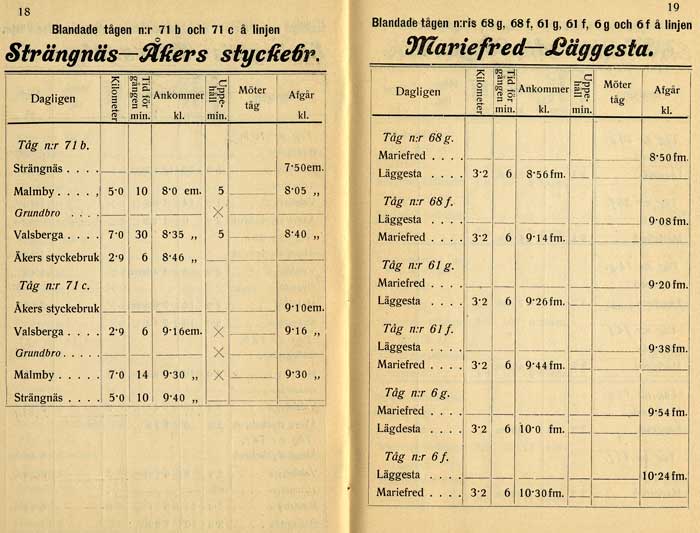 18
Blandade tågen n:r 71 b och 71 c å linjen
Strängnäs—Åkers styckebr.
Dagligen Kilometer Tid för gången min. Ankommer kl. Uppehåll min. Möter tåg Afgår kl.
Tåg n:r 71 b.
Strängnäs . . . . 7·50 em.
Malmby . . . . , 5·0 10 8·0 em. 5 8·05 „
Grundbro ×
Valsberga . . . . 7·0 30 8·35 „ 5 8·40 „
Åkers styckebruk 2·9 6 8·46 „
Tåg n:r 71 c.
Åkers styckebruk 9·10 em.
Valsberga . . . . 2·9 6 9·16 em. × 9·16 „
Grundbro . . . . . ×
Malmby . . . . . 7·0 14 9·30 „ × 9·30 „
Strängnäs . . . . 5·0 10 9·40 „
19
Blandade tågen n:ris 68 g, 68 f, 61 g, 61 f, 6 g och 6 f å linjen
Mariefred—Läggesta.
Dagligen Kilometer Tid för gången min. Ankommer kl. Uppehåll min. Möter tåg Afgår kl.
Tåg n:r 68 g.
Mariefred . . . . 8·50 fm.
Läggesta . . . . 3·2 6 8·56 fm.
Tåg n:r 68 f.
Läggesta . . . . 9·08 fm.
Mariefred . . . . 3·2 6 9·14 fm.
Tåg n:r 61 g.
Mariefred . . . . 9·20 fm.
Läggesta . . . . 3·2 6 9·26 fm.
Tåg n:r 61 f.
Läggesta . . . . 9·38 fm.
Mariefred . . . . 3·2 6 9·44 fm.
Tåg n:r 6 g.
Mariefred . . . . 9·54 fm.
Lägdesta . . . . 3·2 6 10·0 fm.
Tåg n:r 6 f.
Läggesta . . . . 10·24 fm.
Mariefred . . . . 3·2 6 10·30 fm.